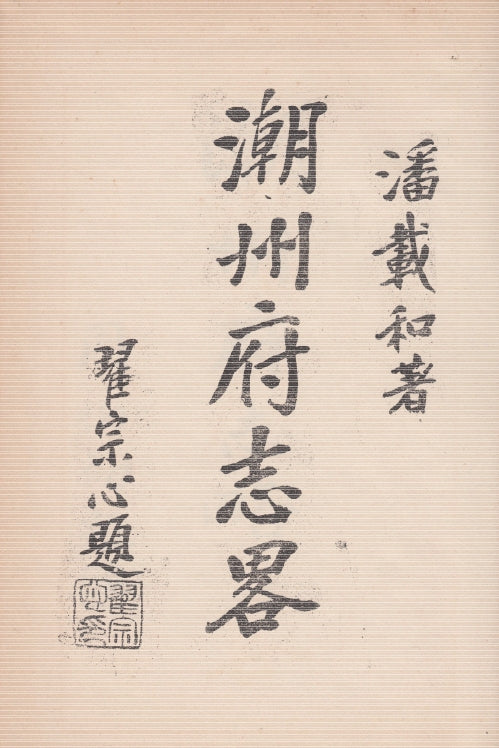 潘載和著
潮州府志畧
翟宗心題
翟宗心印